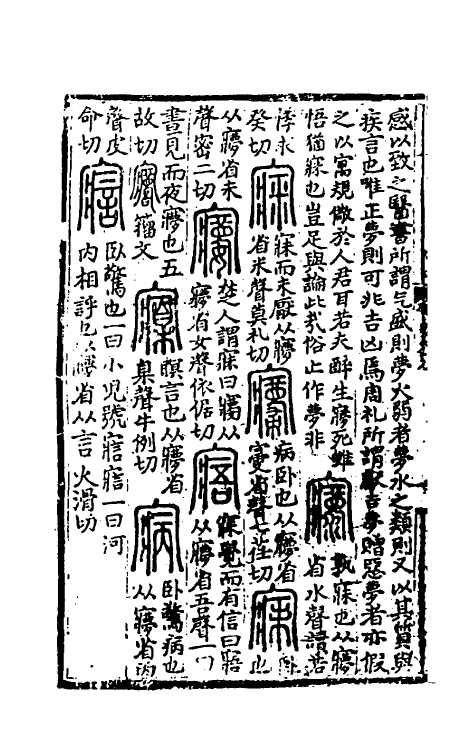 感以致之醫書所謂气盛則夢火弱者夢水之類則又以其質與
疾言也唯正夢則可兆吉凶焉周礼所謂獻吉夢贈惡夢者亦假
之以寓規儆於人君耳若夫醉生㝱死雖
悟猶寐也豈足與論此哉俗上作夢非
孰寐也从㝱
省水聲讀若
悸求
癸切
寐而未厭从㝱
省米聲莫礼切
病卧也从㝱省
㝱省聲七荏切
卧也
从㝱省未
聲密二切
楚人謂寐曰㝲从
㝱省女聲依倨切
寐覺而有信曰寤
从㝱省吾聲一曰
晝見而夜㝱也五
故切
籀文
瞑言也从㝱省
臬聲牛例切
卧驚病也
从㝱省丙
聲皮
命切
卧驚也一曰小兒號寣寣一曰河
內相評也从㝱省从言火滑切